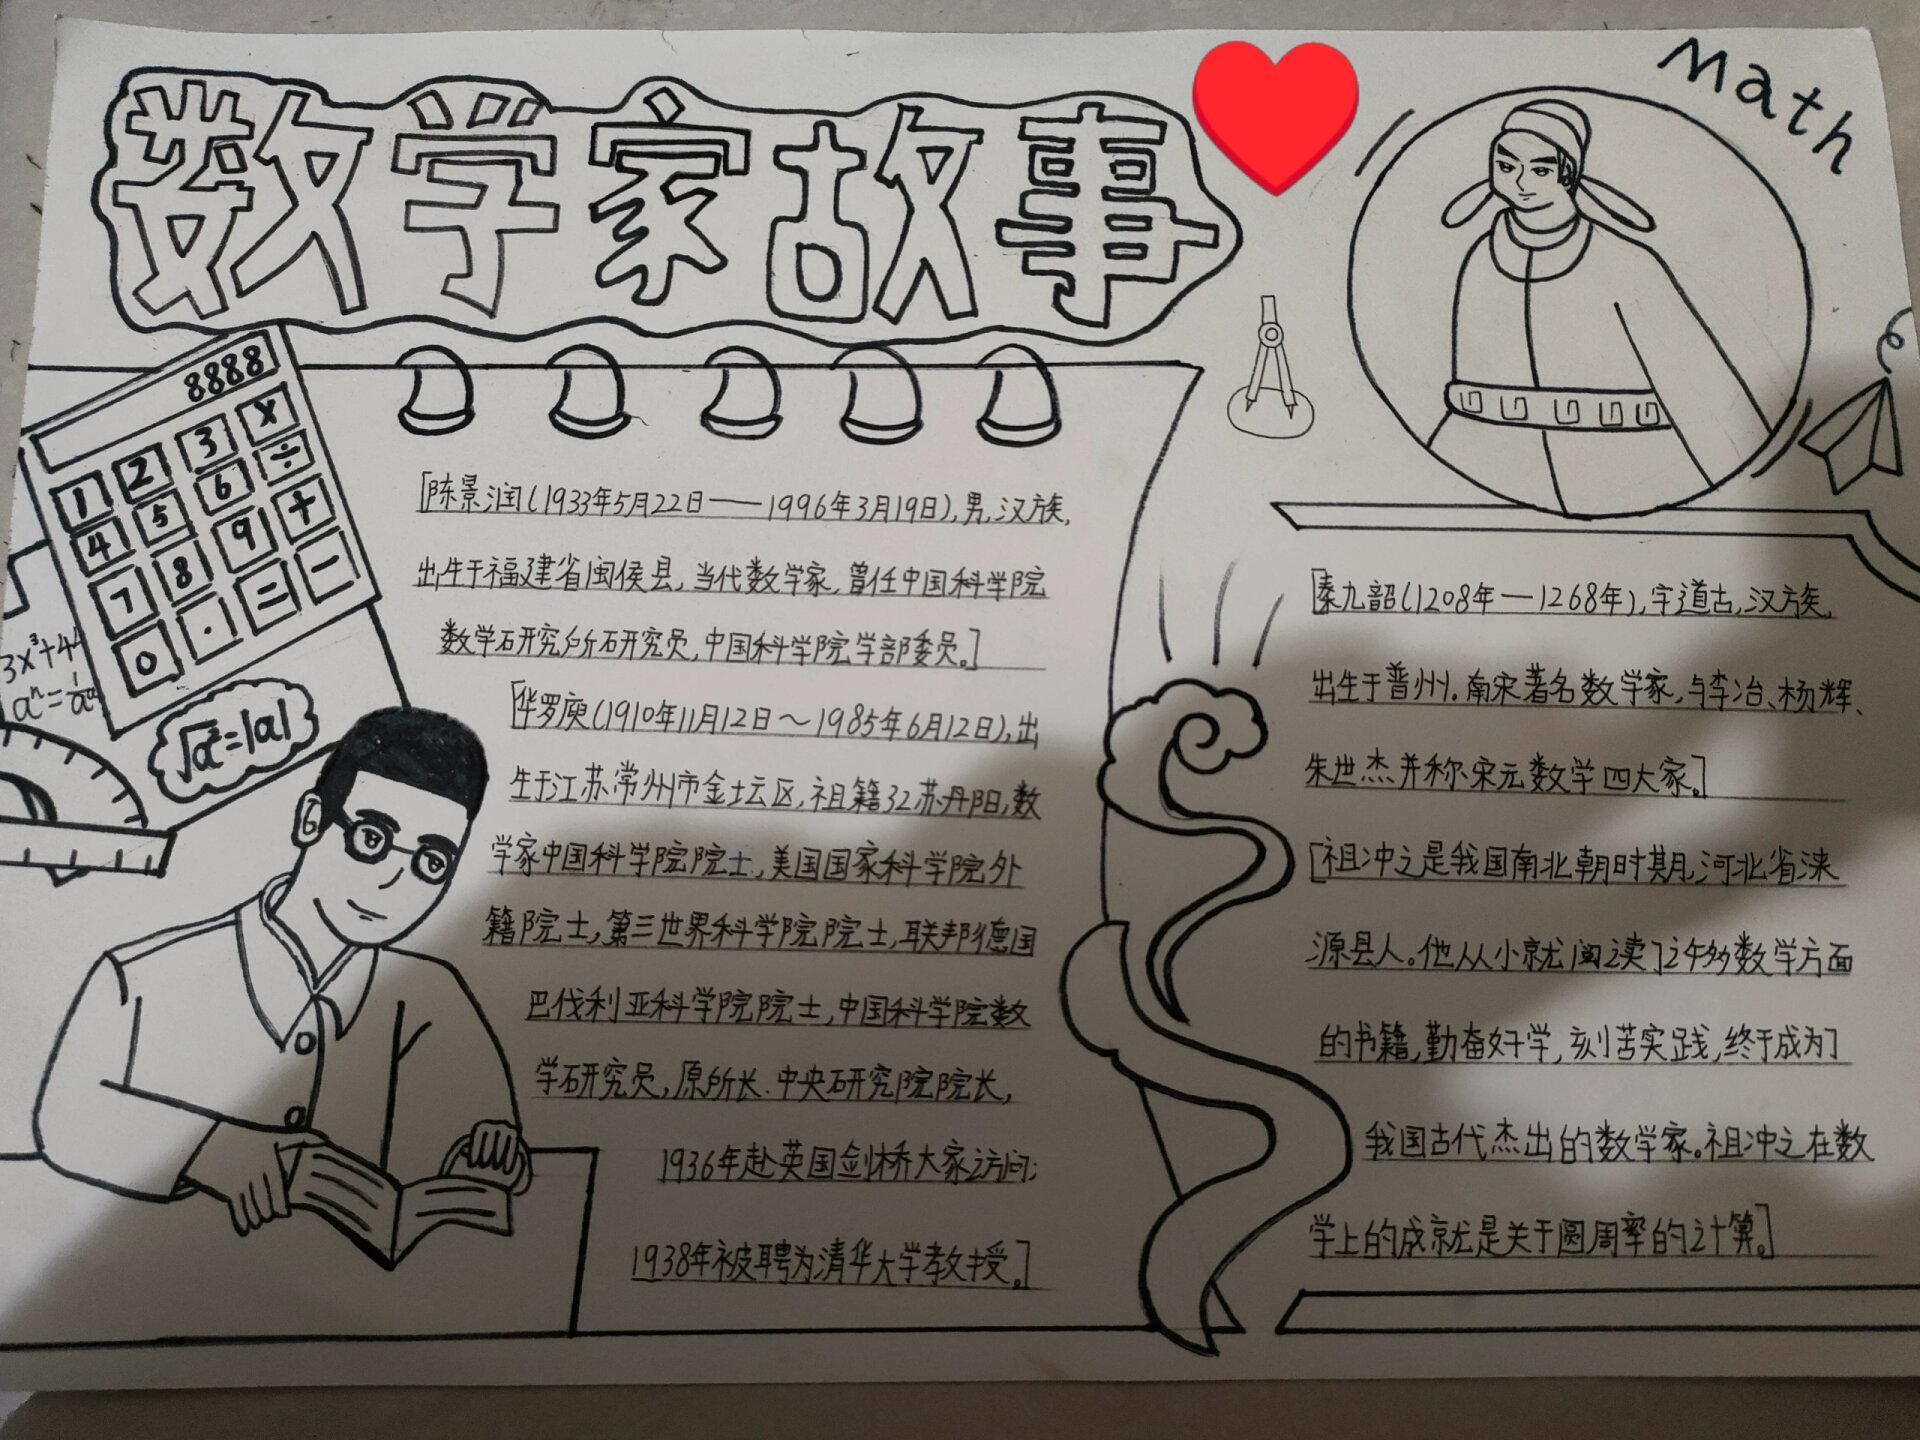 数学家故事
Math
8888
1 2 3 ×
4 5 6 ÷
7 8 9 +
0 . = −
√a²=|a|
[陈景润(1933年5月22日——1996年3月19日),男,汉族,
出生于福建省闽侯县,当代数学家,曾任中国科学院
数学研究所研究员,中国科学院学部委员。]
[华罗庚(1910年11月12日～1985年6月12日),出
生于江苏常州市金坛区,祖籍江苏丹阳,数
学家中国科学院院士,美国国家科学院外
籍院士,第三世界科学院院士,联邦德国
巴伐利亚科学院院士,中国科学院数
学研究员,原所长.中央研究院院长,
1936年赴英国剑桥大家访问;
1938年被聘为清华大学教授。]
[秦九韶(1208年—1268年),字道古,汉族,
出生于普州.南宋著名数学家,与李冶、杨辉、
朱世杰并称宋元数学四大家。]
[祖冲之是我国南北朝时期,河北省涞
源县人。他从小就阅读了许多数学方面
的书籍,勤奋好学,刻苦实践,终于成为了
我国古代杰出的数学家。祖冲之在数
学上的成就是关于圆周率的计算。]